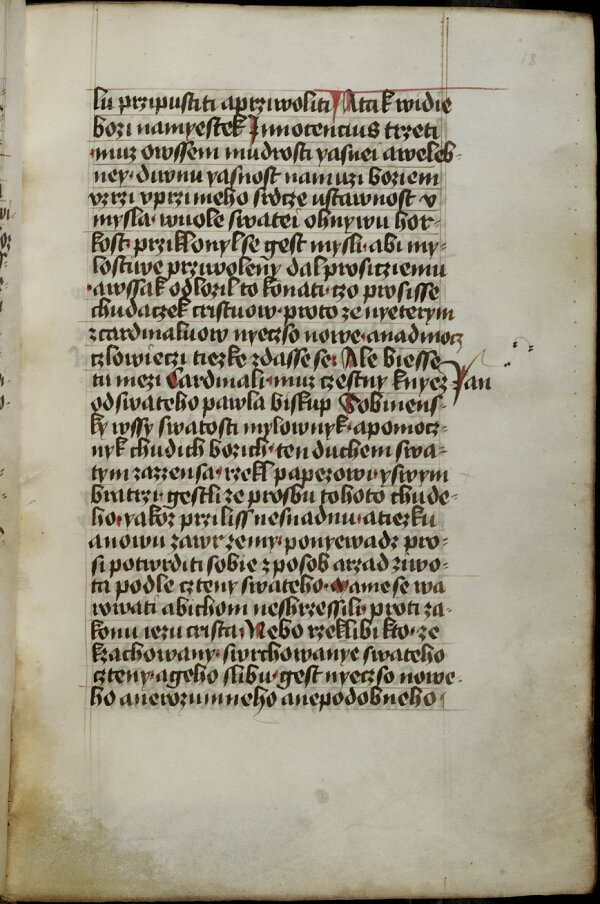 18
lu przipustiti aprziwoliti Atak widie
bozi namyestek Innocencius trzeti
muz owssem mudrosti yasnei aweleb-
ney· diwnu yasnost namuzi boziem
vzrzi vprzimeho srdcze ustawnost v
mysla· wuole swatei ohnywu hor-
kost· przikllonylse gest mysli· abi my-
lostiwe przwoleny dal prositziemu
·awssak odlozil to konati· czo prosisse
chudaczek cristuow· proto ze nyeterym
zcardinaluow nyeczso nowe· anadmocz
czlowieczi tiezke zdasse se· Ale biesse
tu mezi Cardinali· muz czestny knyez Jan
odswateho pawla biskup Sobinens-
ky wssy swatosti mylownyk· apomocz-
nyk chudich bozich· ten duchem swa-
tym zazzensa· rzekl papezowi· yswym
bratrzi· gestli ze prosbu tohoto chude-
ho· yakoz przilissnesnadnu· atiezku
anowu zawrzemy· ponyewadz pro-
si potwrditi sobie zposob arzad ziwo-
ta podle czteny swateho· Mame se wa
rowati abichom neshrzessili· proti za-
konu iezu crista· Nebo rzeklibi kto· ze
kzachowany· swrchowanye swateho
czteny· ageho slibu· gest nyeczso nowe-
ho anerozumneho anepodobneho